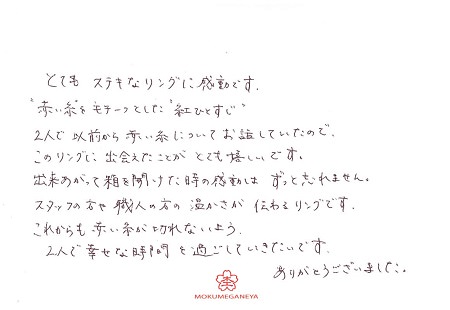 とても ステキなリングに感動です.
"赤い糸"をモチーフとした"紅ひとすじ"
2人で以前から赤い糸についてお話していたので、
このリングに出会えたことがとても嬉しいです。
出来あがって箱を開けた時の感動は ずっと忘れません。
スタッフの方や職人の方の温かさが伝わるリングです.
これからも赤い糸が切れないよう.
2人で幸せな時間を過ごしていきたいです.
ありがとうございました.
MOKUMEGANEYA